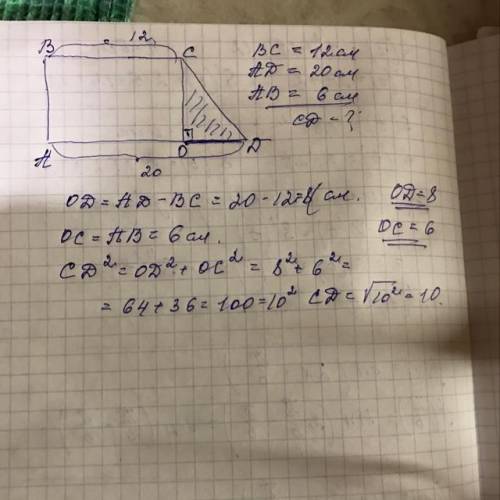 12
B C
A O D
20
BC = 12 см
AD = 20 см
AB = 6 см
CD - ?
OD = AD - BC = 20 - 12 = 8 см. OD = 8
OC = AB = 6 см. OC = 6
CD² = OD² + OC² = 8² + 6² =
= 64 + 36 = 100 = 10² CD = √10² = 10.